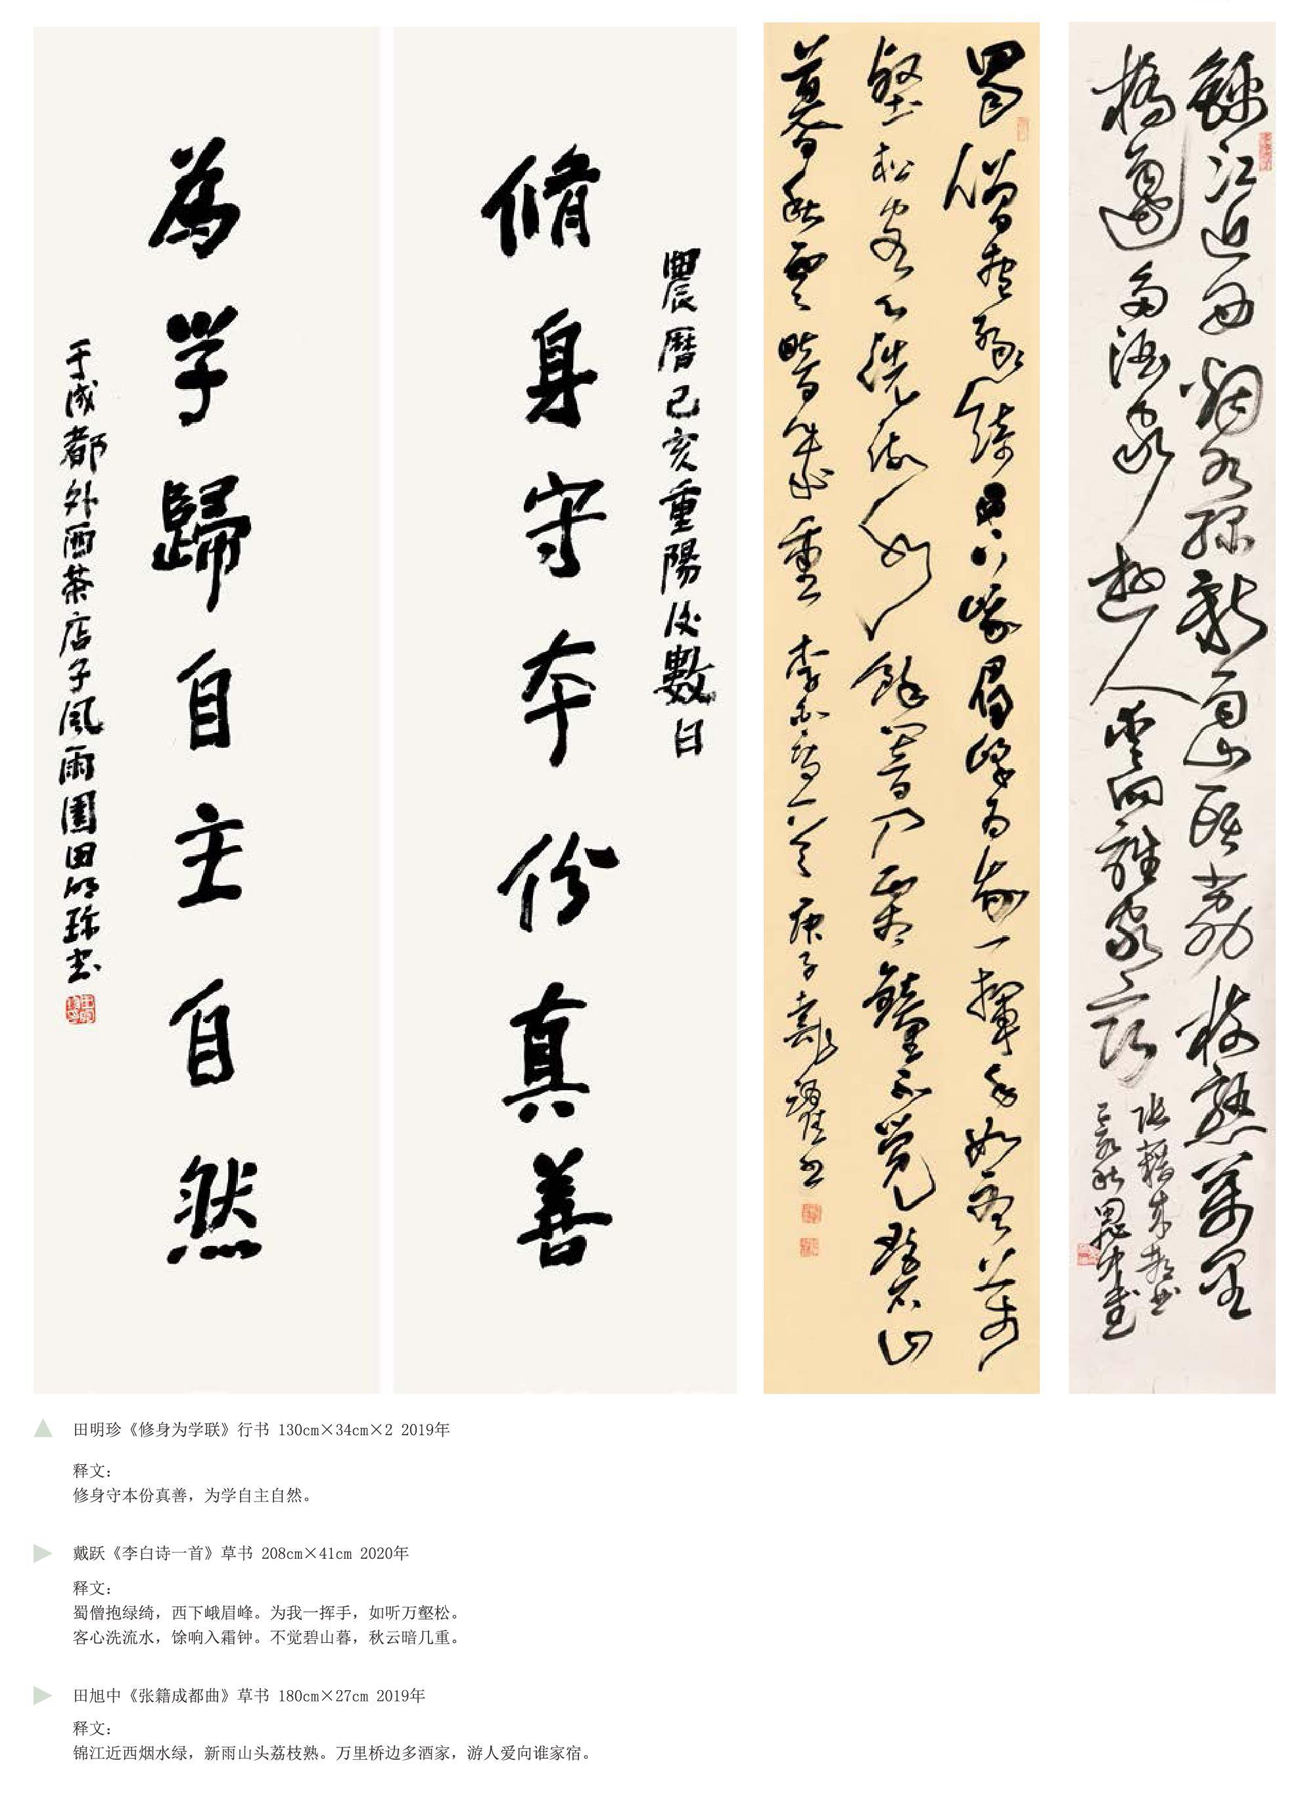 農曆己亥重陽後數日
脩身守夲份真善
為学歸自主自然
于成都外西茶店子风雨園田明珍书
蜀僧抱綠綺西下峨眉峰为我一揮手如听萬
壑松客心洗流水餘響入霜鐘不覺碧山
暮秋雲暗幾重 李白詩一首 庚子戴躍书
錦江近西烟水綠新雨山頭荔枝熟萬里
橋邊多酒家遊人愛向誰家宿
張籍成都曲
己亥秋旭中書
田明珍《修身为学联》行书 130cm×34cm×2 2019年
释文：
修身守本份真善，为学自主自然。
戴跃《李白诗一首》草书 208cm×41cm 2020年
释文：
蜀僧抱绿绮，西下峨眉峰。为我一挥手，如听万壑松。
客心洗流水，馀响入霜钟。不觉碧山暮，秋云暗几重。
田旭中《张籍成都曲》草书 180cm×27cm 2019年
释文：
锦江近西烟水绿，新雨山头荔枝熟。万里桥边多酒家，游人爱向谁家宿。